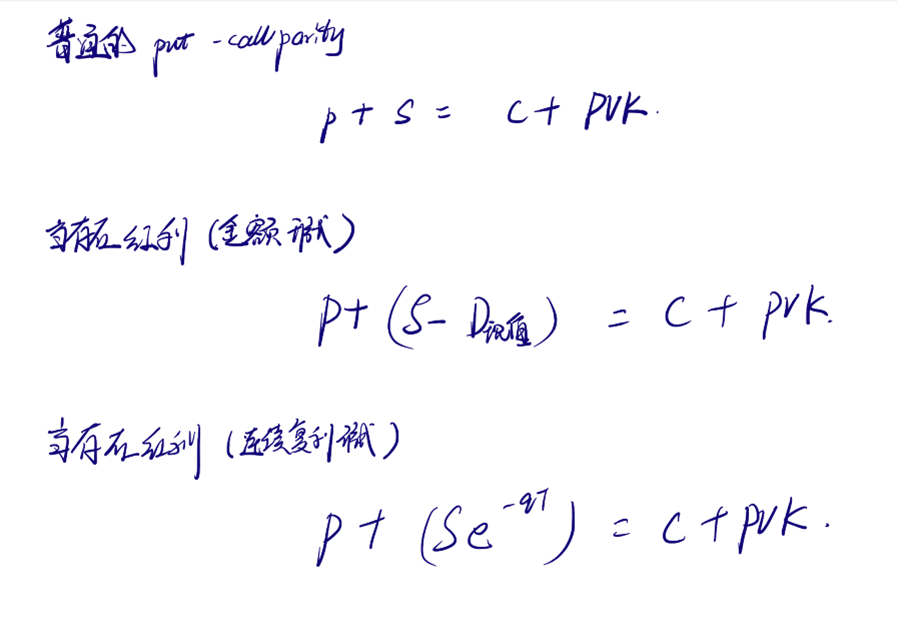 普通的 put-call parity
p + S = C + PVK.
当存在红利(金额形式)
p + (S - D现值) = C + PVK.
当存在红利(连续复利形式)
p + (Se^-qT) = C + PVK.